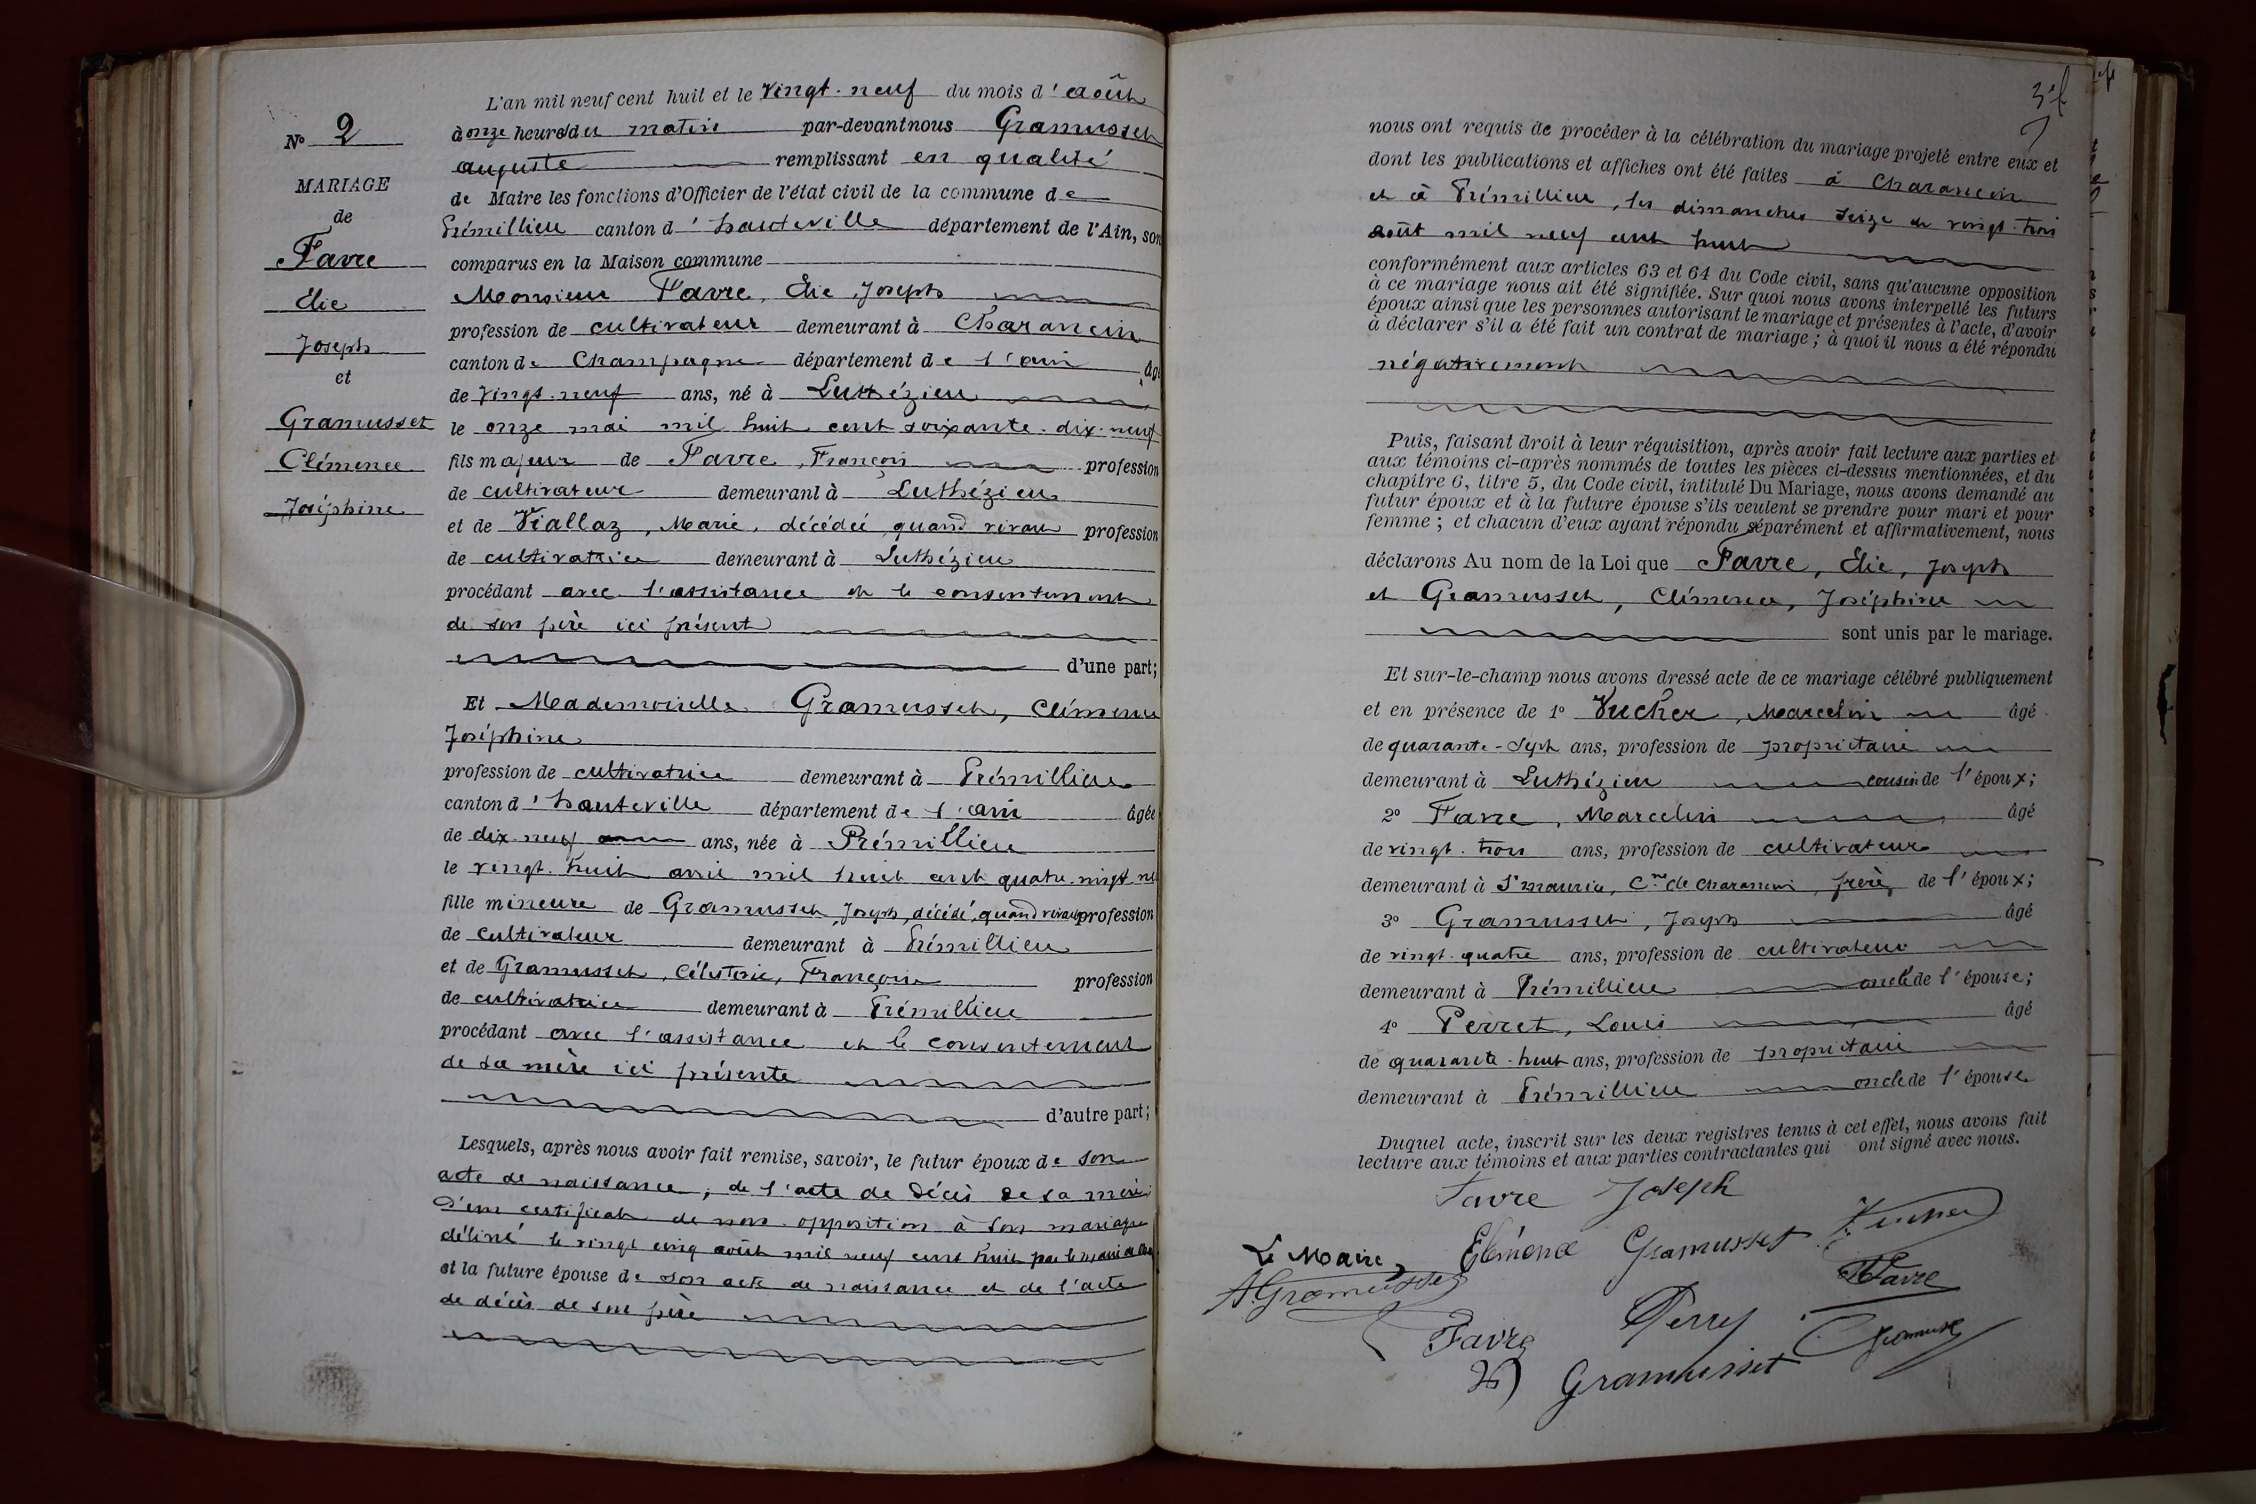 N° 2
MARIAGE
de
Favre
Élie
Joseph
et
Gramusset
Clémence
Joséphine
L'an mil neuf cent huit et le vingt-neuf du mois d'août
à onze heures du matin par-devant nous Gramusset
auguste remplissant en qualité
de Maire les fonctions d'Officier de l'état civil de la commune de
Prémillieu canton d'hauteville département de l'Ain, son
comparus en la Maison commune
Monsieur Favre, Élie, Joseph
profession de cultivateur demeurant à Charancin
canton de Champagne département de l'ain âgé
de vingt-neuf ans, né à Luthézieu
le onze mai mil huit cent soixante-dix-neuf
fils majeur de Favre, François profession
de cultivateur demeurant à Luthézieu
et de Viallaz, Marie, décédée, quand vivait profession
de cultivatrice demeurant à Luthézieu
procédant avec l'assistance et le consentement
de son père ici présent
d'une part;
Et Mademoiselle Gramusset, Clémence
Joséphine
profession de cultivatrice demeurant à Prémillieu
canton d'hauteville département de l'ain âgée
de dix-neuf ans, née à Prémillieu
le vingt-huit avril mil huit cent quatre-vingt-neuf
fille mineure de Gramusset, Joseph, décédé, quand vivait profession
de cultivateur demeurant à Prémillieu
et de Gramusset, Célestine, Françoise profession
de cultivatrice demeurant à Prémillieu
procédant avec l'assistance et le consentement
de sa mère ici présente
d'autre part;
Lesquels, après nous avoir fait remise, savoir, le futur époux de son
acte de naissance, de l'acte de décès de sa mère
d'un certificat de non opposition à son mariage
délivré le vingt cinq août mil neuf cent huit par le maire de
et la future épouse de son acte de naissance et de l'acte
de décès de son père
nous ont requis de procéder à la célébration du mariage projeté entre eux et
dont les publications et affiches ont été faites à Charancin
et à Prémillieu, les dimanches seize et vingt-trois
août mil neuf cent huit
conformément aux articles 63 et 64 du Code civil, sans qu'aucune opposition
à ce mariage nous ait été signifiée. Sur quoi nous avons interpellé les futurs
époux ainsi que les personnes autorisant le mariage et présentes à l'acte, d'avoir
à déclarer s'il a été fait un contrat de mariage ; à quoi il nous a été répondu
négativement
Puis, faisant droit à leur réquisition, après avoir fait lecture aux parties et
aux témoins ci-après nommés de toutes les pièces ci-dessus mentionnées, et du
chapitre 6, titre 5, du Code civil, intitulé Du Mariage, nous avons demandé au
futur époux et à la future épouse s'ils veulent se prendre pour mari et pour
femme ; et chacun d'eux ayant répondu séparément et affirmativement, nous
déclarons Au nom de la Loi que Favre, Élie, Joseph
et Gramusset, Clémence, Joséphine
sont unis par le mariage.
Et sur-le-champ nous avons dressé acte de ce mariage célébré publiquement
et en présence de 1° Vucher, Marcelin âgé
de quarante-sept ans, profession de propriétaire
demeurant à Luthézieu cousin de l'époux;
2° Favre, Marcelin âgé
de vingt-trois ans, profession de cultivateur
demeurant à St maurice, Cne de Charancin, frère, de l'époux;
3° Gramusset, Joseph âgé
de vingt-quatre ans, profession de cultivateur
demeurant à Prémillieu oncle de l'épouse;
4° Perret, Louis âgé
de quarante-huit ans, profession de propriétaire
demeurant à Prémillieu oncle de l'épouse
Duquel acte, inscrit sur les deux registres tenus à cet effet, nous avons fait
lecture aux témoins et aux parties contractantes qui ont signé avec nous.
Favre Joseph
Le Maire, Clémence Gramusset Vucher
A. Gramusset Favre
Favre Perret Gramusset
Gramusset